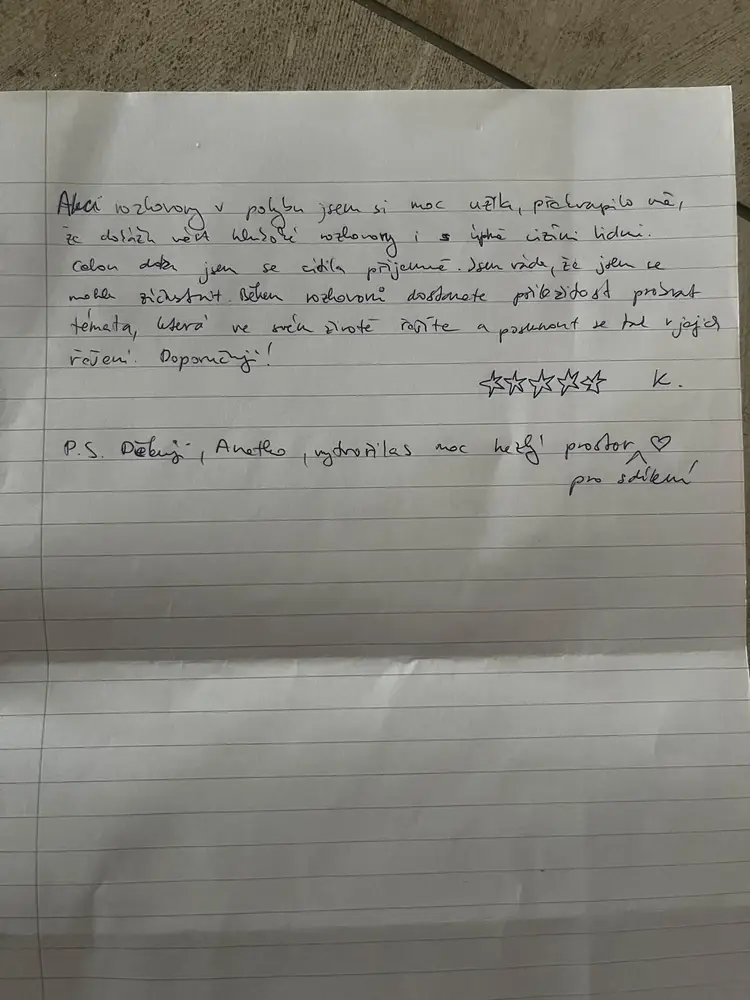 Akci rozhovory v pohybu jsem si moc užila, překvapilo mě,
že dokážu vést hluboké rozhovory i s úplně cizími lidmi.
Celou dobu jsem se cítila příjemně. Jsem ráda, že jsem se
mohla zúčastnit. Během rozhovorů dostanete příležitost probrat
témata, která ve svém životě řešíte a posunout se tak v jejich
řešení. Doporučuji!
☆☆☆☆☆ K.
P.S. Děkuji, Anetko, vytvořilas moc hezký prostor ♡
pro sdílení